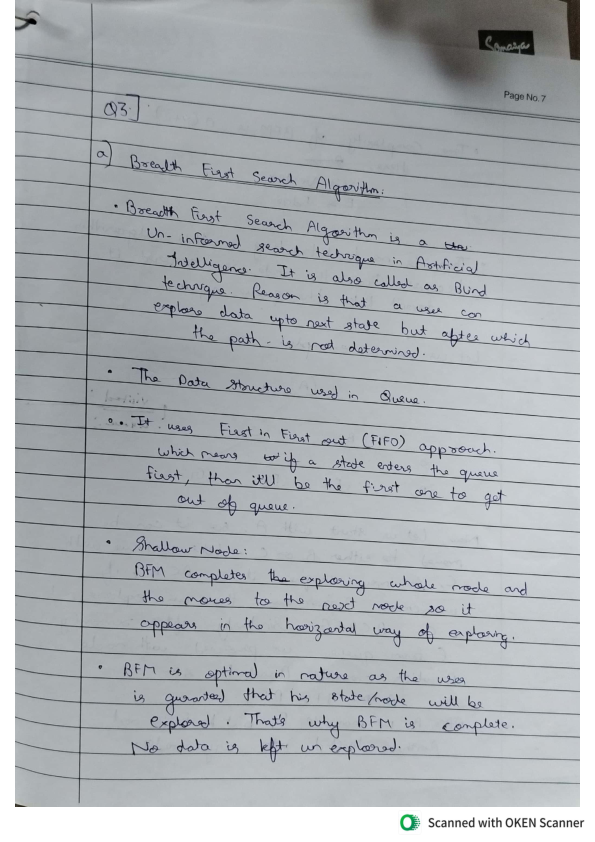 Samaya
Page No. 7
Q3]
a) Breadth First Search Algorithm:
• Breadth First Search Algorithm is a
Un-informed search technique in Artificial
Intelligence. It is also called as Blind
technique. Reason is that a user can
explore data upto next state but after which
the path is not determined.
• The Data structure used in Queue.
• It uses First in First out (FIFO) approach.
which means if a state enters the queue
first, than it'll be the first one to get
out of queue.
• Shallow Node:
BFM completes the exploring whole node and
the moves to the next node so it
appears in the horizontal way of exploring.
• BFM is optimal in nature as the user
is guranteed that his state/node will be
explored. That's why BFM is complete.
No data is left un explored.
Scanned with OKEN Scanner